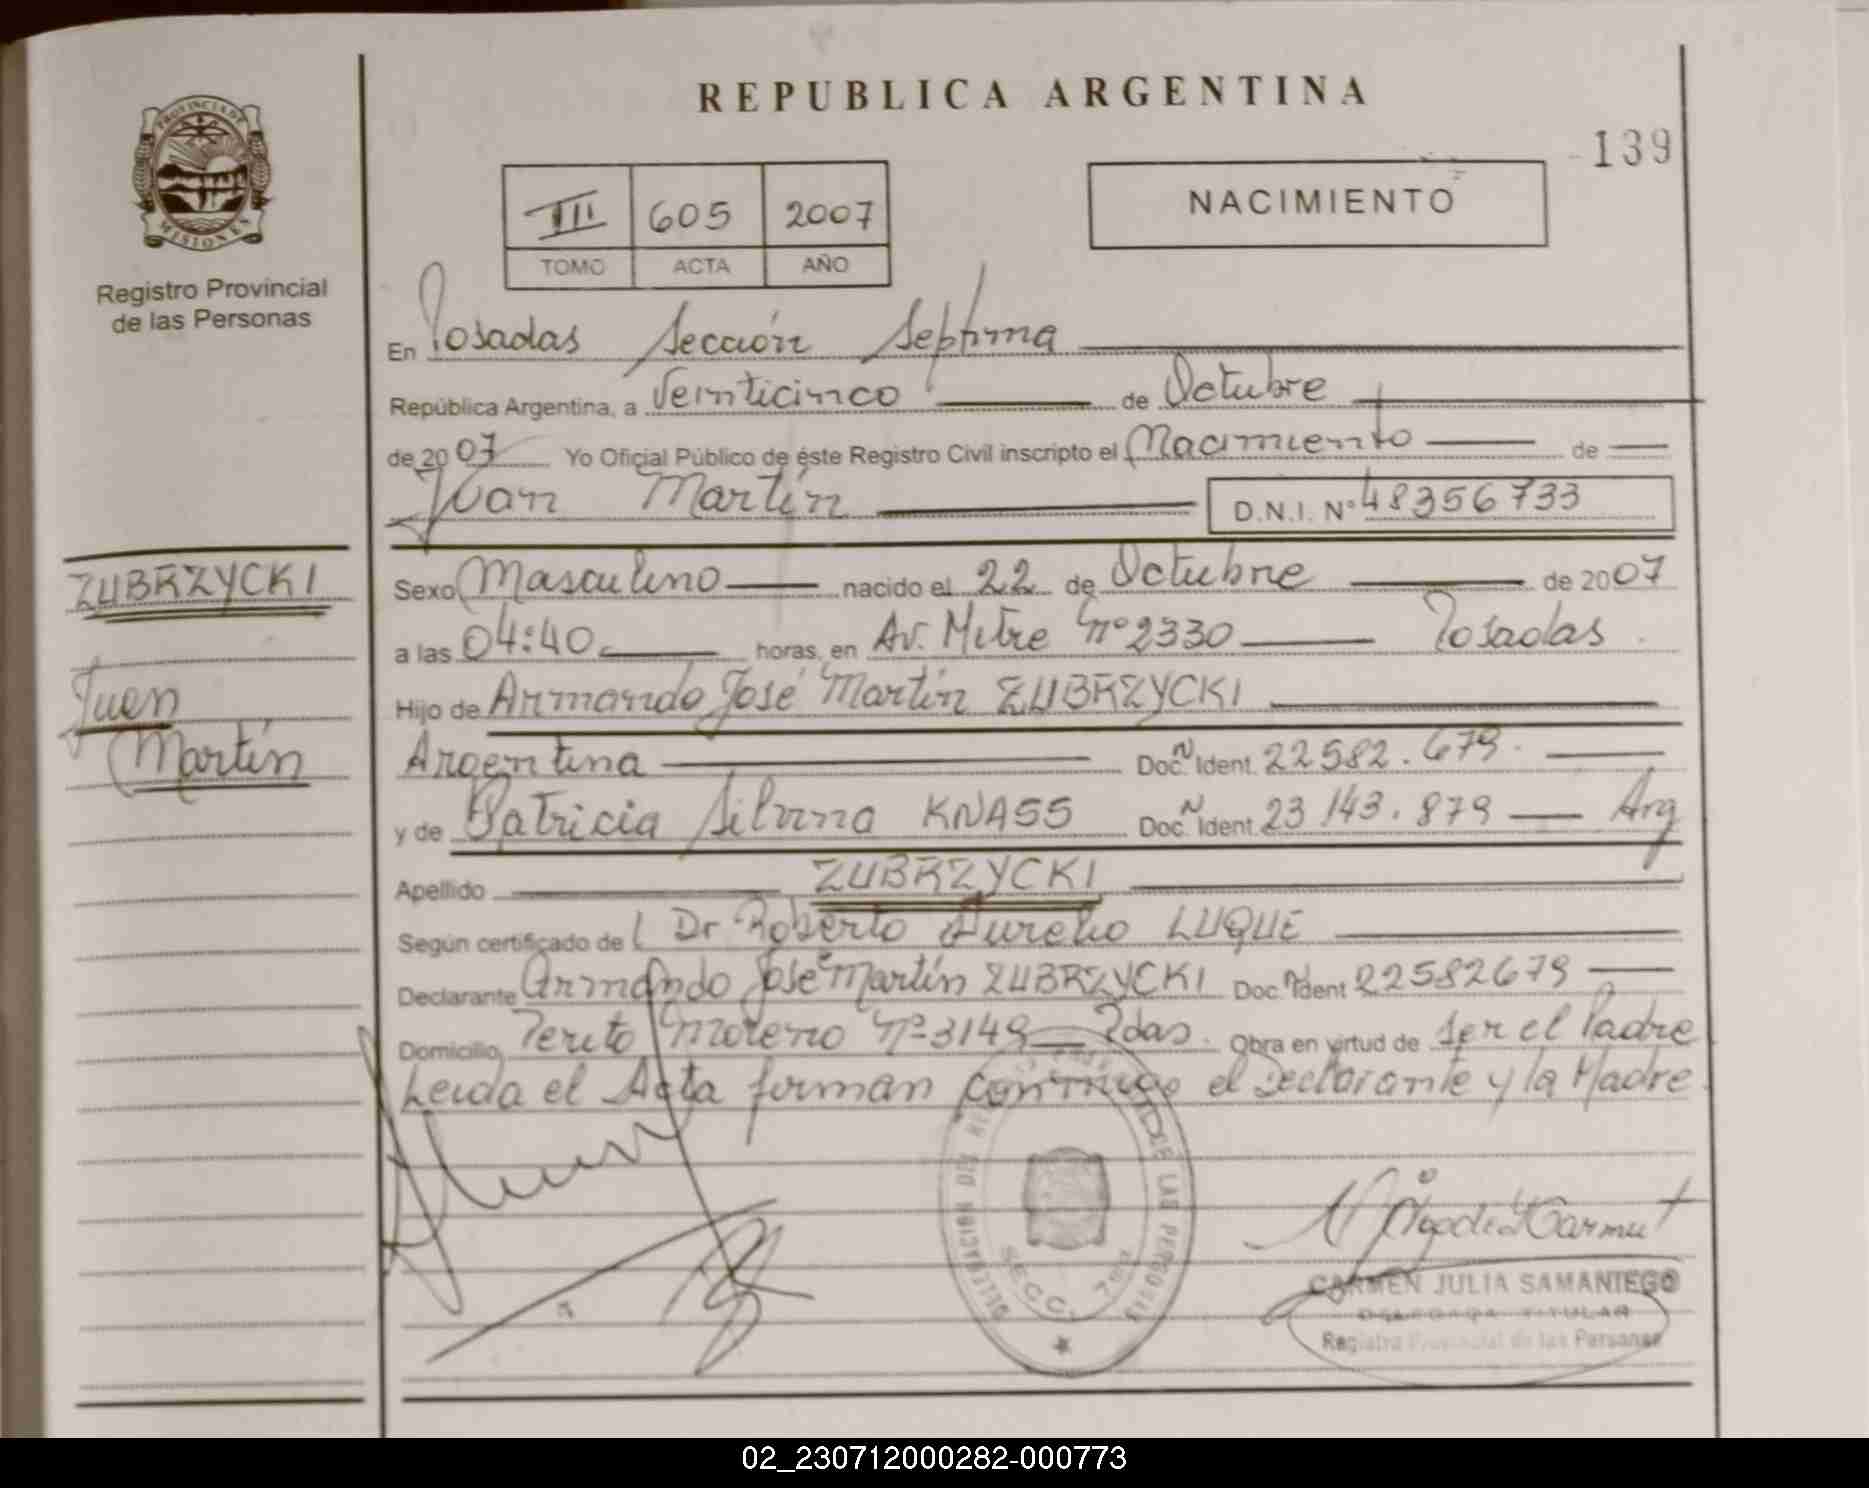 REPUBLICA ARGENTINA
139
PROVINCIA DE MISIONES
Registro Provincial
de las Personas
III 605 2007
TOMO ACTA AÑO
NACIMIENTO
En Posadas Sección Septima
República Argentina, a Veinticinco de Octubre
de 2007 Yo Oficial Público de éste Registro Civil inscripto el Nacimiento de
Juan Martín D.N.I. Nº 48356733
ZUBRZYCKI
Juan
Martín
Sexo Masculino nacido el 22 de Octubre de 2007
a las 04:40 horas, en Av. Mitre Nº 2330 Posadas
Hijo de Armando José Martín ZUBRZYCKI
Argentina Doc. Ident. 22582.679
y de Patricia Silvina KNASS Doc. Ident. 23143.879 Arg
Apellido ZUBRZYCKI
Según certificado de Dr Roberto Aurelio LUQUE
Declarante Armando José Martín ZUBRZYCKI Doc. Ident 22582679
Domicilio Perito Moreno Nº 3149 Pdas. Obra en virtud de ser el Padre
Leida el Acta firman conmigo el Declarante y la Madre
DELEGACION DEL REGISTRO DE LAS PERSONAS
SECC. 7ma
CARMEN JULIA SAMANIEGO
DELEGADA TITULAR
Registro Provincial de las Personas
02_230712000282-000773